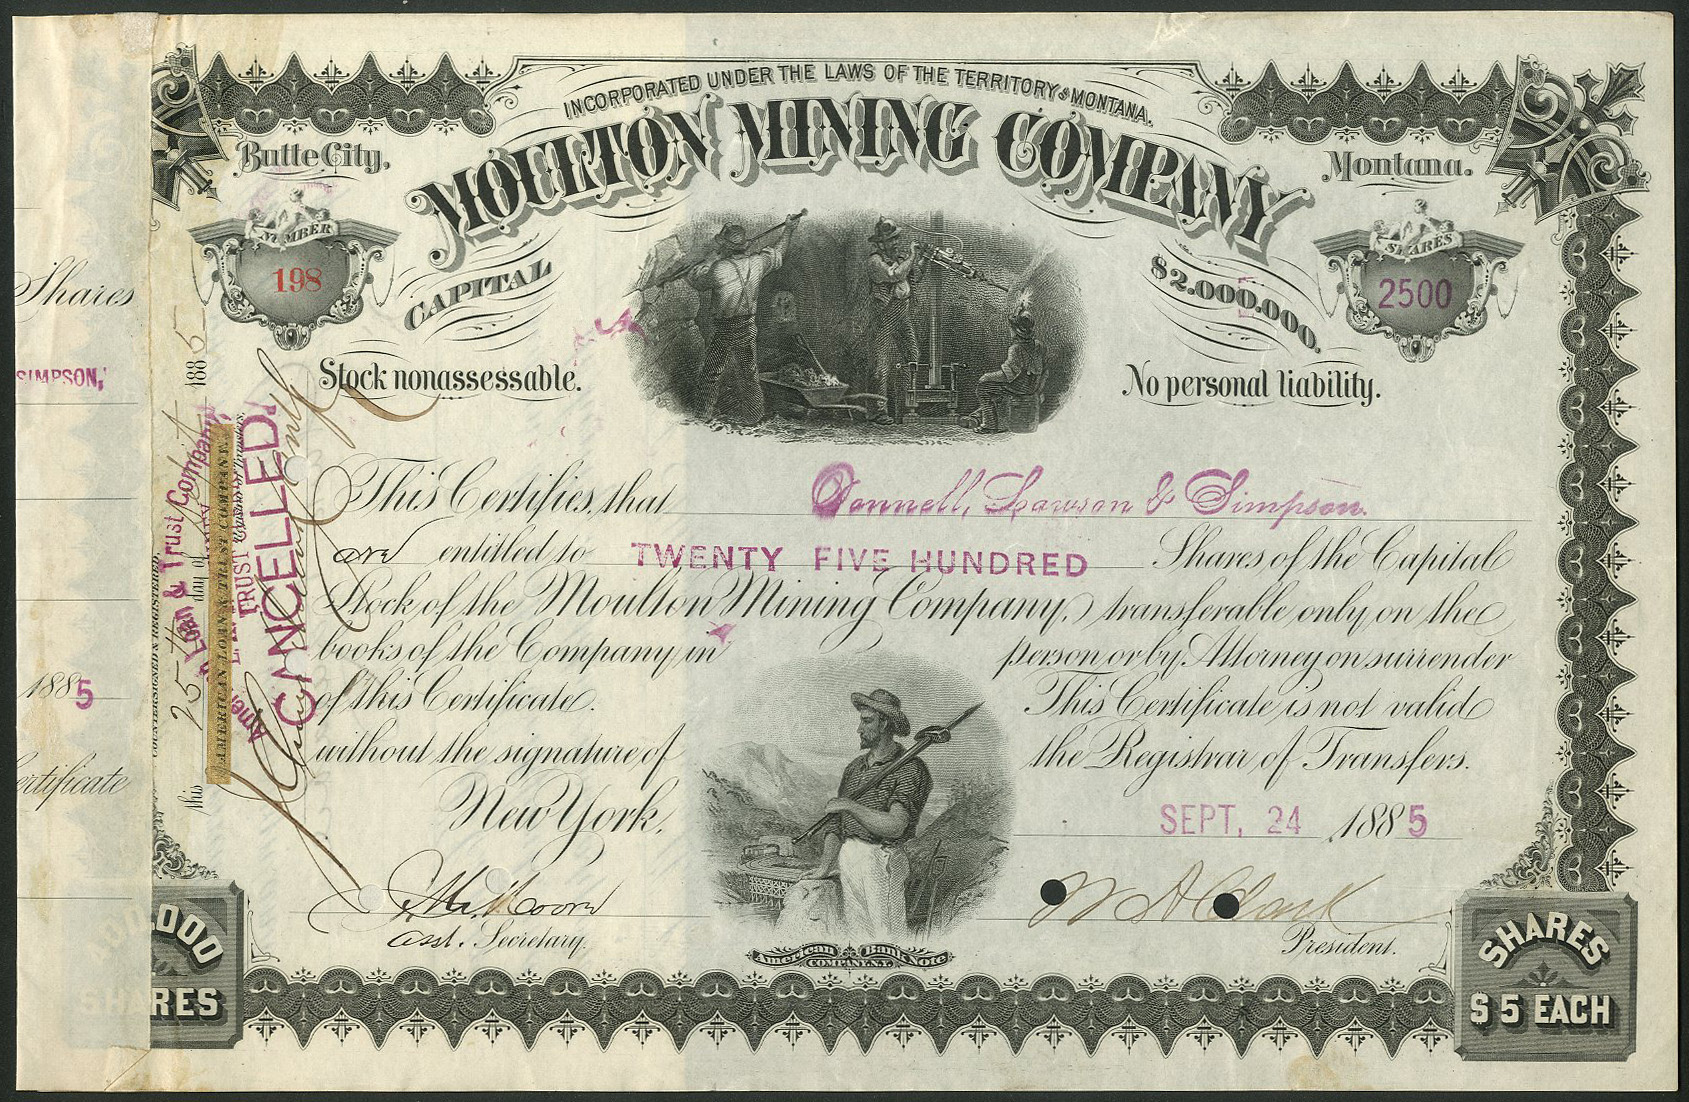 INCORPORATED UNDER THE LAWS OF THE TERRITORY OF MONTANA.
Butte City,
MOULTON MINING COMPANY
Montana.
NUMBER
198
SHARES
2500
CAPITAL
$2.000.000.
Stock nonassessable.
No personal liability.
This Certifies, that Donnell, Lawson & Simpson.
are entitled to TWENTY FIVE HUNDRED Shares of the Capital
Stock of the Moulton Mining Company, transferable only on the
books of the Company in person or by Attorney on surrender
of this Certificate. This Certificate is not valid
without the signature of the Registrar of Transfers.
New York, SEPT. 24 1885
Asst. Secretary.
W A Clark
President.
American Bank Note
COMPANY N.Y.
SHARES
SHARES
$5 EACH
Shares
SIMPSON,
1885
ertificate
COUNTERSIGNED & REGISTERED
this 25th day of Sept 1885
AMERICAN LOAN & TRUST COMPANY
Loan & Trust Company
TRUST
CANCELLED